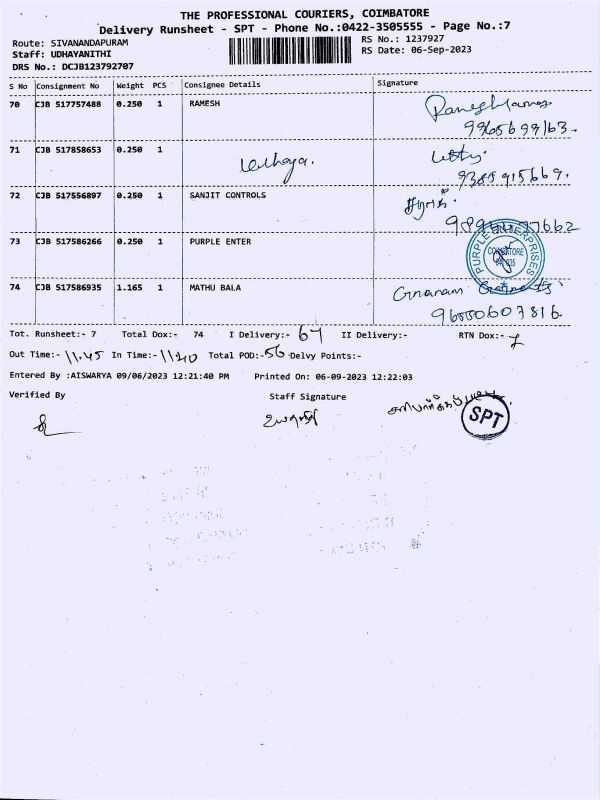 THE PROFESSIONAL COURIERS, COIMBATORE
Delivery Runsheet - SPT - Phone No.:0422-3505555 - Page No.:7
Route: SIVANANDAPURAM
Staff: UDHAYANITHI
DRS No.: DCJB123792707
RS No.: 1237927
RS Date: 06-Sep-2023
S No Consignment No Weight PCS Consignee Details Signature
70 CJB 517757488 0.250 1 RAMESH
9965699163.
71 CJB 517858653 0.250 1
9385915669.
72 CJB 517556897 0.250 1 SANJIT CONTROLS
73 CJB 517586266 0.250 1 PURPLE ENTER
PURPLE ENTERPRISES
COIMBATORE
74 CJB 517586935 1.165 1 MATHU BALA
Gnanam Garments
Tot. Runsheet:- 7 Total Dox:- 74 I Delivery:- 67 II Delivery:- RTN Dox:- 7
Out Time:- 11.45 In Time:- 1120 Total POD:- 56 Delvy Points:-
Entered By :AISWARYA 09/06/2023 12:21:40 PM Printed On: 06-09-2023 12:22:03
Verified By Staff Signature
SPT